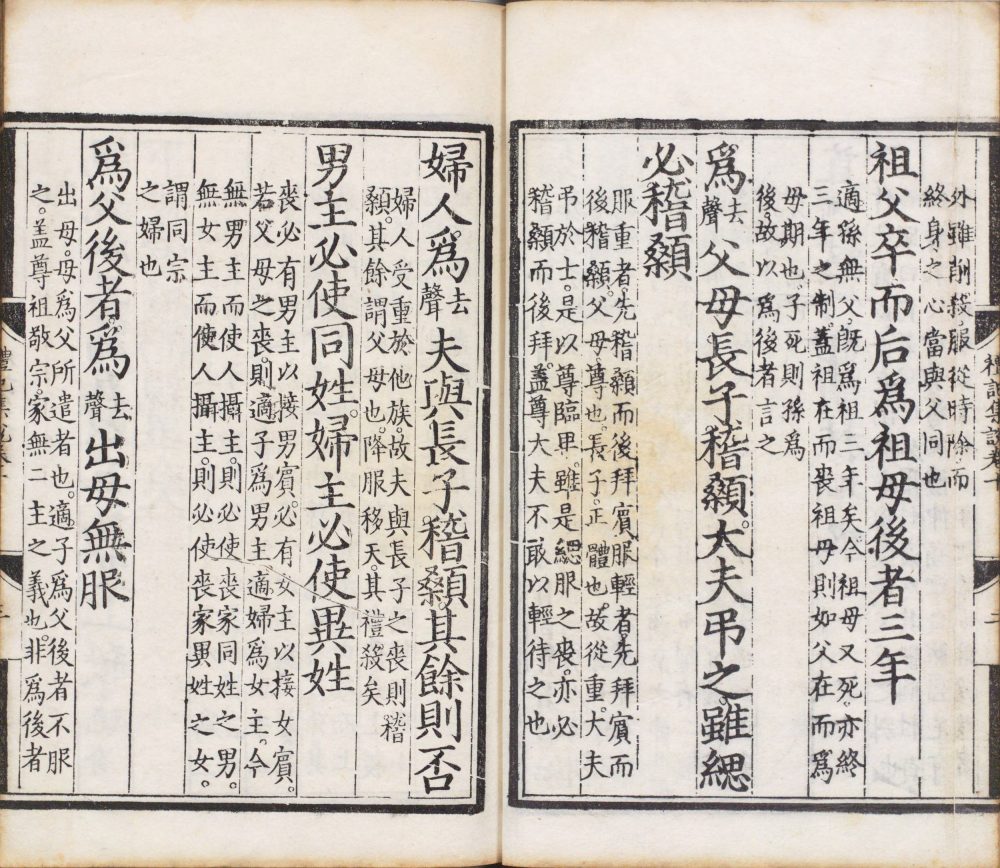 外雖削殺服從時除而
終身之心當與父同也
祖父卒而后爲祖母後者三年
適孫無父旣爲祖三年矣今祖母又死亦終
三年之制蓋祖在而喪祖母則如父在而爲
母期也子死則孫爲
後故以爲後者言之
爲去聲父母長子稽顙大夫弔之雖緦
必稽顙
服重者先稽顙而後拜賓服輕者先拜賓而
後稽顙父母尊也長子正體也故從重大夫
弔於士是以尊臨卑雖是緦服之喪亦必
稽顙而後拜蓋尊大夫不敢以輕待之也
婦人爲去聲夫與長子稽顙其餘則否
婦人受重於他族故夫與長子之喪則稽
顙其餘謂父母也降服移天其禮殺矣
男主必使同姓婦主必使異姓
喪必有男主以接男賓必有女主以接女賓
若父母之喪則適子爲男主適婦爲女主今
無男主而使人攝主則必使喪家同姓之男
無女主而使人攝主則必使喪家異姓之女
謂同宗
之婦也
爲父後者爲去聲出母無服
出母母爲父所遣者也適子爲父後者不服
之蓋尊祖敬宗家無二主之義也非爲後者